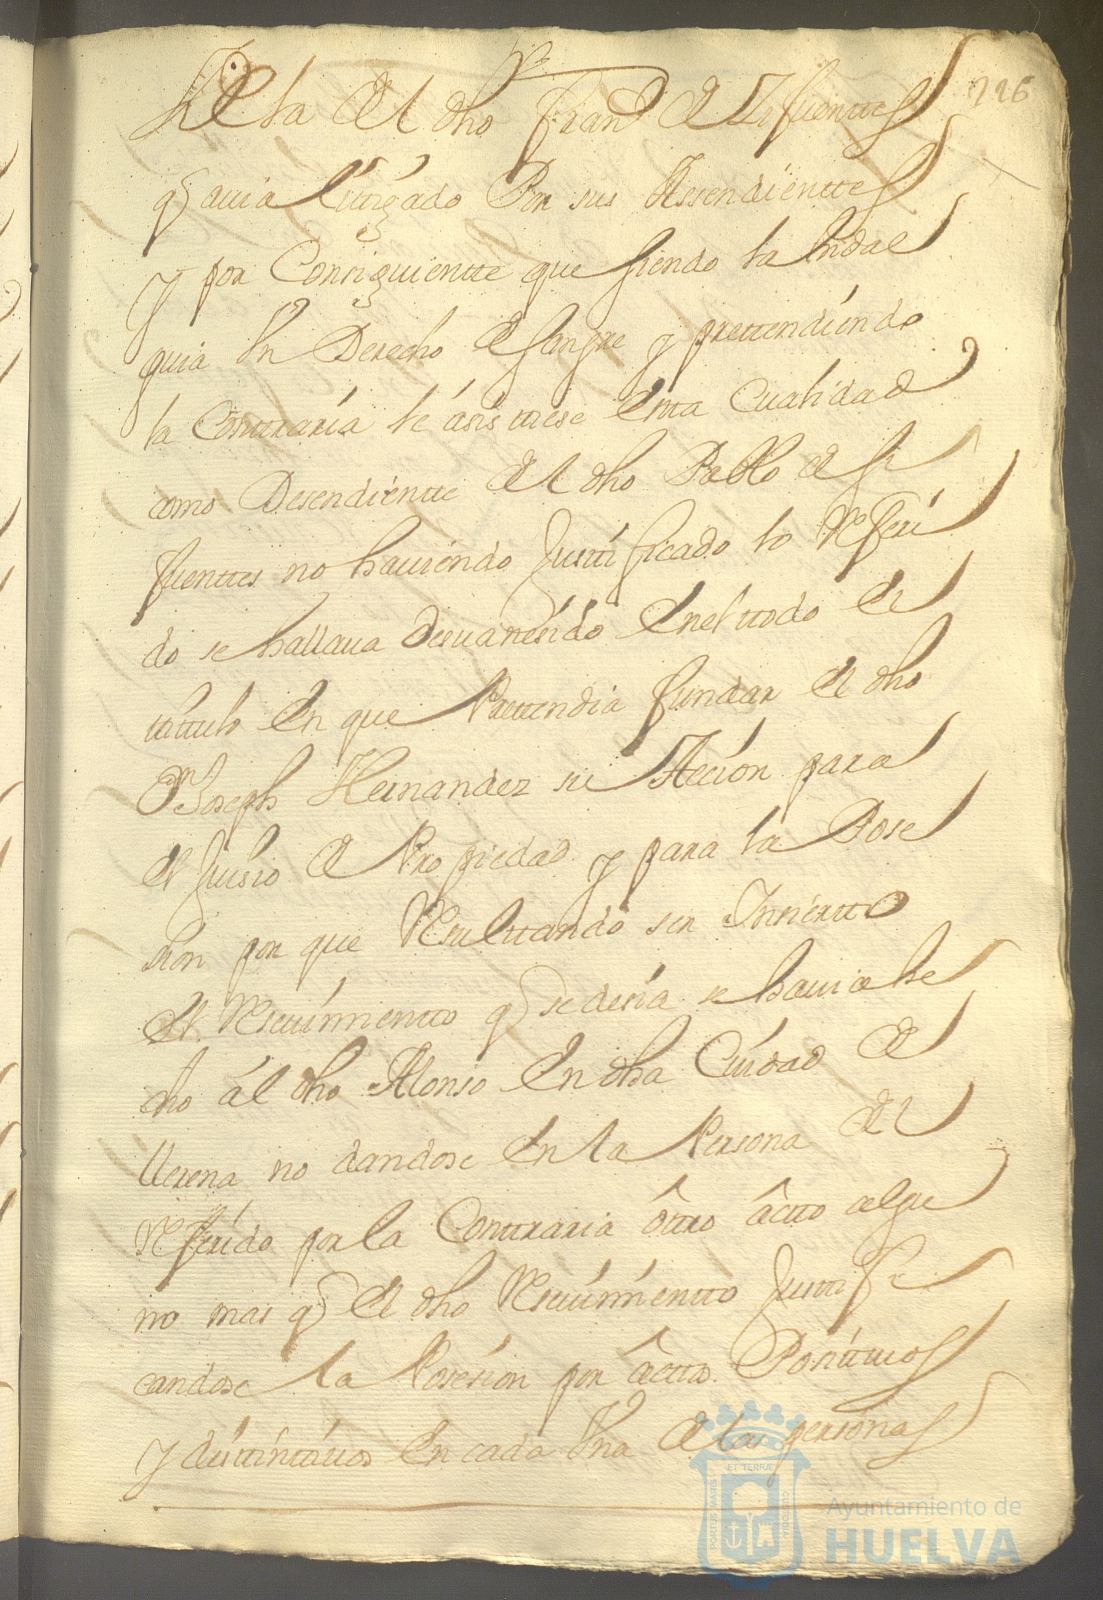 226
de la del dho Fran.co de Sifuenttes
q avia litigado Por sus Assendienttes
y por Consiguientte que siendo la hidal
guia Un Derecho de sangre y prettendiendo
la Contraria le asisttiese Estta Cualidad
como Desendientte del dho Pablo de Si
fuenttes no haviendo Justtificado lo Referi
do se hallava Desvanesido En el ttodo el
tittulo En que Prettendia fundar el dho
Dn Joseph Hernandez su Accion para
el Juisio de Propiedad y para la Pose
sion por que Resulttando ser Insiertto
el Resevimientto q se desia se havia he
cho al dho Alonso En dha Ciudad de
llerena no dandose En la Persona del
Referido por la Contraria otro actto algu
no mas q el dho Resevimientto Justtifi
candose la Posesion por acttos Posittivos
y disttinttivos En cada Una de las personas
PORTUS MARIS ET TERRÆ CUSTODIA
Ayuntamiento de
HUELVA